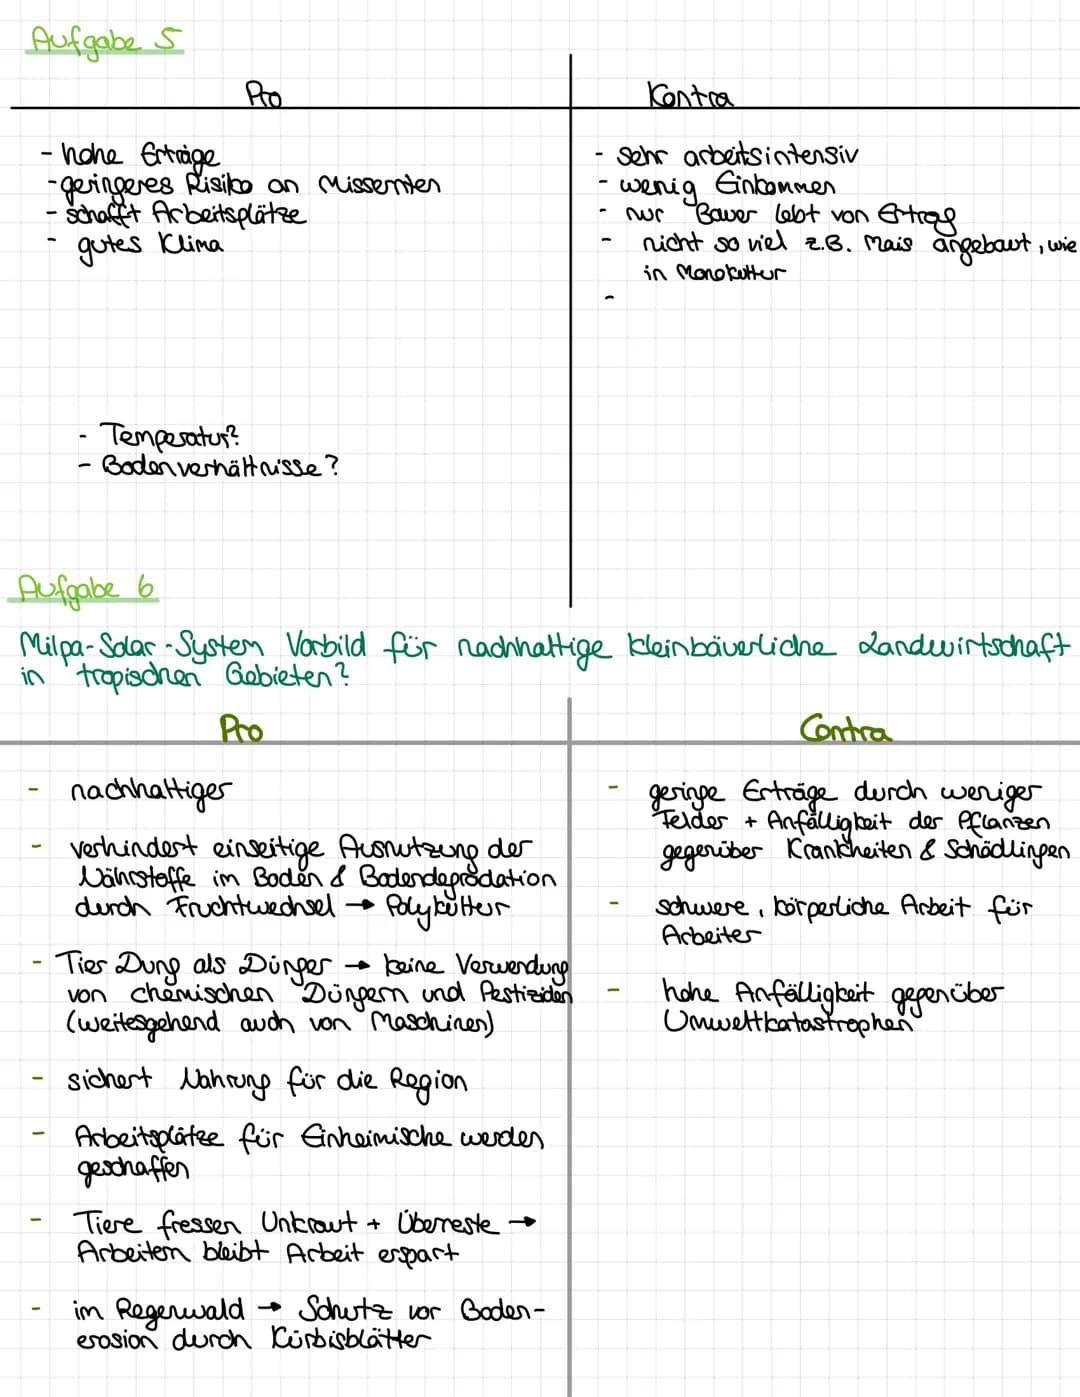 Aufgabe 5
Pro
Kontra
- hohe Erträge
- geringeres Risiko an Missernten
- schafft Arbeitsplätze
- gutes Klima
- sehr arbeitsintensiv
- wenig Einkommen
- nur Bauer lebt von Ertrag
- nicht so viel z.B. Mais angebaut, wie
in Monokultur
-
- Temperatur?
- Bodenverhältnisse?
Aufgabe 6
Milpa-Solar-System Vorbild für nachhaltige kleinbäuerliche Landwirtschaft
in tropischen Gebieten?
Pro
Contra
- nachhaltiger
- verhindert einseitige Ausnutzung der
Nährstoffe im Boden & Bodendegradation
durch Fruchtwechsel → Polykultur
- Tier Dung als Dünger → keine Verwendung
von chemischen Düngern und Pestiziden
(weitesgehend auch von Maschinen)
- sichert Nahrung für die Region
- Arbeitsplätze für Einheimische werden
geschaffen
- Tiere fressen Unkraut + Überreste →
Arbeitern bleibt Arbeit erspart
- im Regenwald → Schutz vor Boden-
erosion durch Kürbisblätter
- geringe Erträge durch weniger
Felder + Anfälligkeit der Pflanzen
gegenüber Krankheiten & Schädlingen
- schwere, körperliche Arbeit für
Arbeiter
- hohe Anfälligkeit gegenüber
Umweltkatastrophen